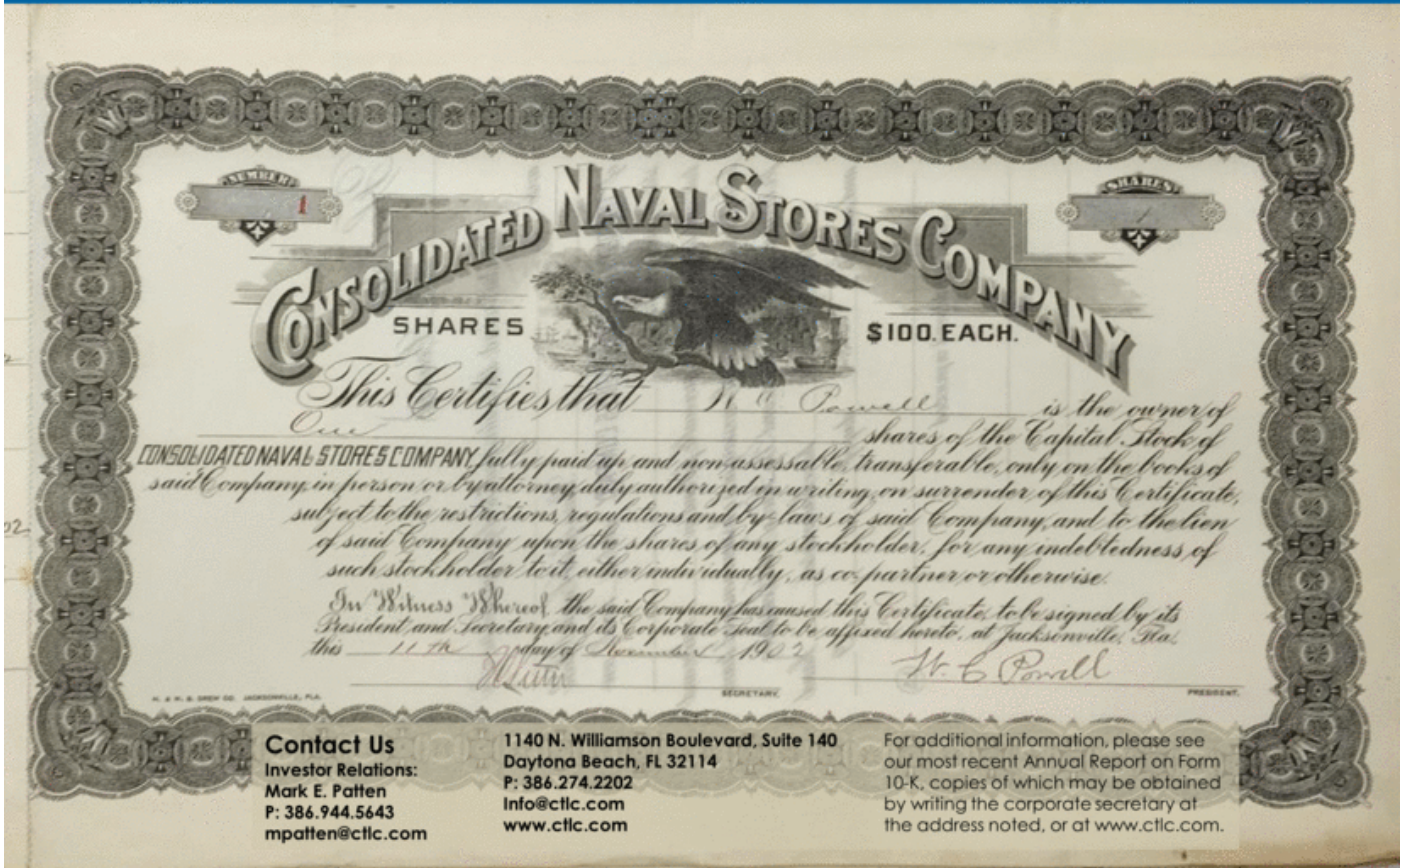 NUMBER
1
SHARES
1
CONSOLIDATED NAVAL STORES COMPANY
SHARES
$100. EACH.
This Certifies that W C Powell is the owner of
One shares of the Capital Stock of
CONSOLIDATED NAVAL STORES COMPANY, fully paid up, and non-assessable, transferable, only on the books of
said Company, in person or by attorney, duly authorized in writing, on surrender of this Certificate,
subject to the restrictions, regulations and by-laws of said Company, and to the lien
of said Company upon the shares of any stockholder, for any indebtedness of
such stockholder to it, either individually, as co-partner or otherwise.
In Witness Whereof, the said Company has caused this Certificate, to be signed by its
President, and Secretary, and its Corporate Seal to be affixed hereto, at Jacksonville, Fla.
this 11th day of November 1902
W. C Powell
H. & W. B. DREW CO. JACKSONVILLE, FLA.
SECRETARY.
PRESIDENT.
02
Contact Us
Investor Relations:
Mark E. Patten
P: 386.944.5643
mpatten@ctlc.com
1140 N. Williamson Boulevard, Suite 140
Daytona Beach, FL 32114
P: 386.274.2202
Info@ctlc.com
www.ctlc.com
For additional information, please see
our most recent Annual Report on Form
10-K, copies of which may be obtained
by writing the corporate secretary at
the address noted, or at www.ctlc.com.